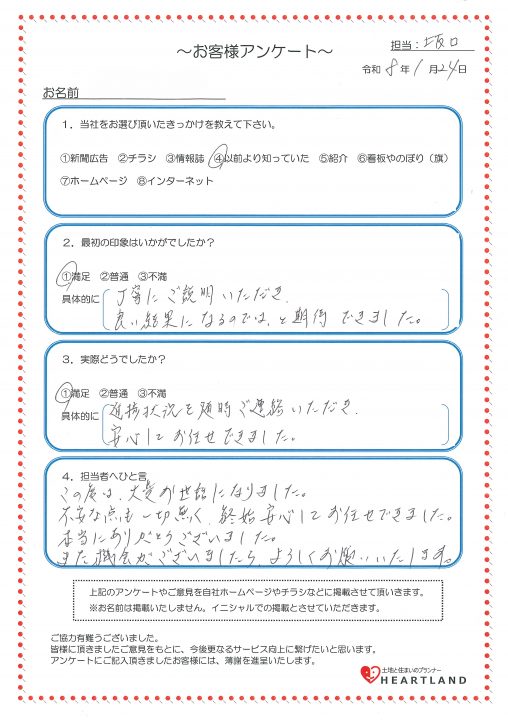 ～お客様アンケート～
担当：坂口
令和 8 年 1 月 24 日
お名前
1．当社をお選び頂いたきっかけを教えて下さい。
①新聞広告 ②チラシ ③情報誌 ④以前より知っていた ⑤紹介 ⑥看板やのぼり（旗）
⑦ホームページ ⑧インターネット
2．最初の印象はいかがでしたか？
①満足 ②普通 ③不満
具体的に 丁寧にご説明いただき、
良い結果になるのでは、と期待できました。
3．実際どうでしたか？
①満足 ②普通 ③不満
具体的に 進捗状況を随時ご連絡いただき、
安心してお任せできました。
4．担当者へひと言
この度は、大変お世話になりました。
不安な点も一切無く、終始安心してお任せできました。
本当にありがとうございました。
また機会がございましたら、よろしくお願いいたします。
上記のアンケートやご意見を自社ホームページやチラシなどに掲載させて頂きます。
※お名前は掲載いたしません。イニシャルでの掲載とさせていただきます。
ご協力有難うございました。
皆様に頂きましたご意見をもとに、今後更なるサービス向上に繋げたいと思います。
アンケートにご記入頂きましたお客様には、薄謝を進呈いたします。
土地と住まいのプランナー
HEARTLAND